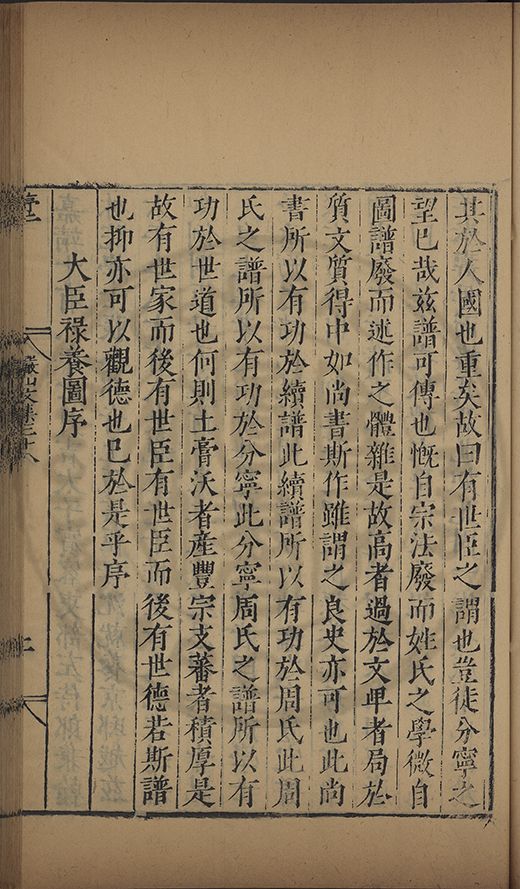 其於人國也重矣故曰有世臣之謂也豈徒分寧之
望已哉兹譜可傳也慨自宗法廢而姓氏之學微自
圖譜廢而述作之體雜是故高者過於文卑者局於
質文質得中如尚書斯作雖謂之良史亦可也此尚
書所以有功於續譜此續譜所以有功於周氏此周
氏之譜所以有功於分寧此分寧周氏之譜所以有
功於世道也何則土膏沃者産豐宗支蕃者積厚是
故有世家而後有世臣有世臣而後有世德若斯譜
也抑亦可以觀德也已於是乎序
大臣祿養圖序